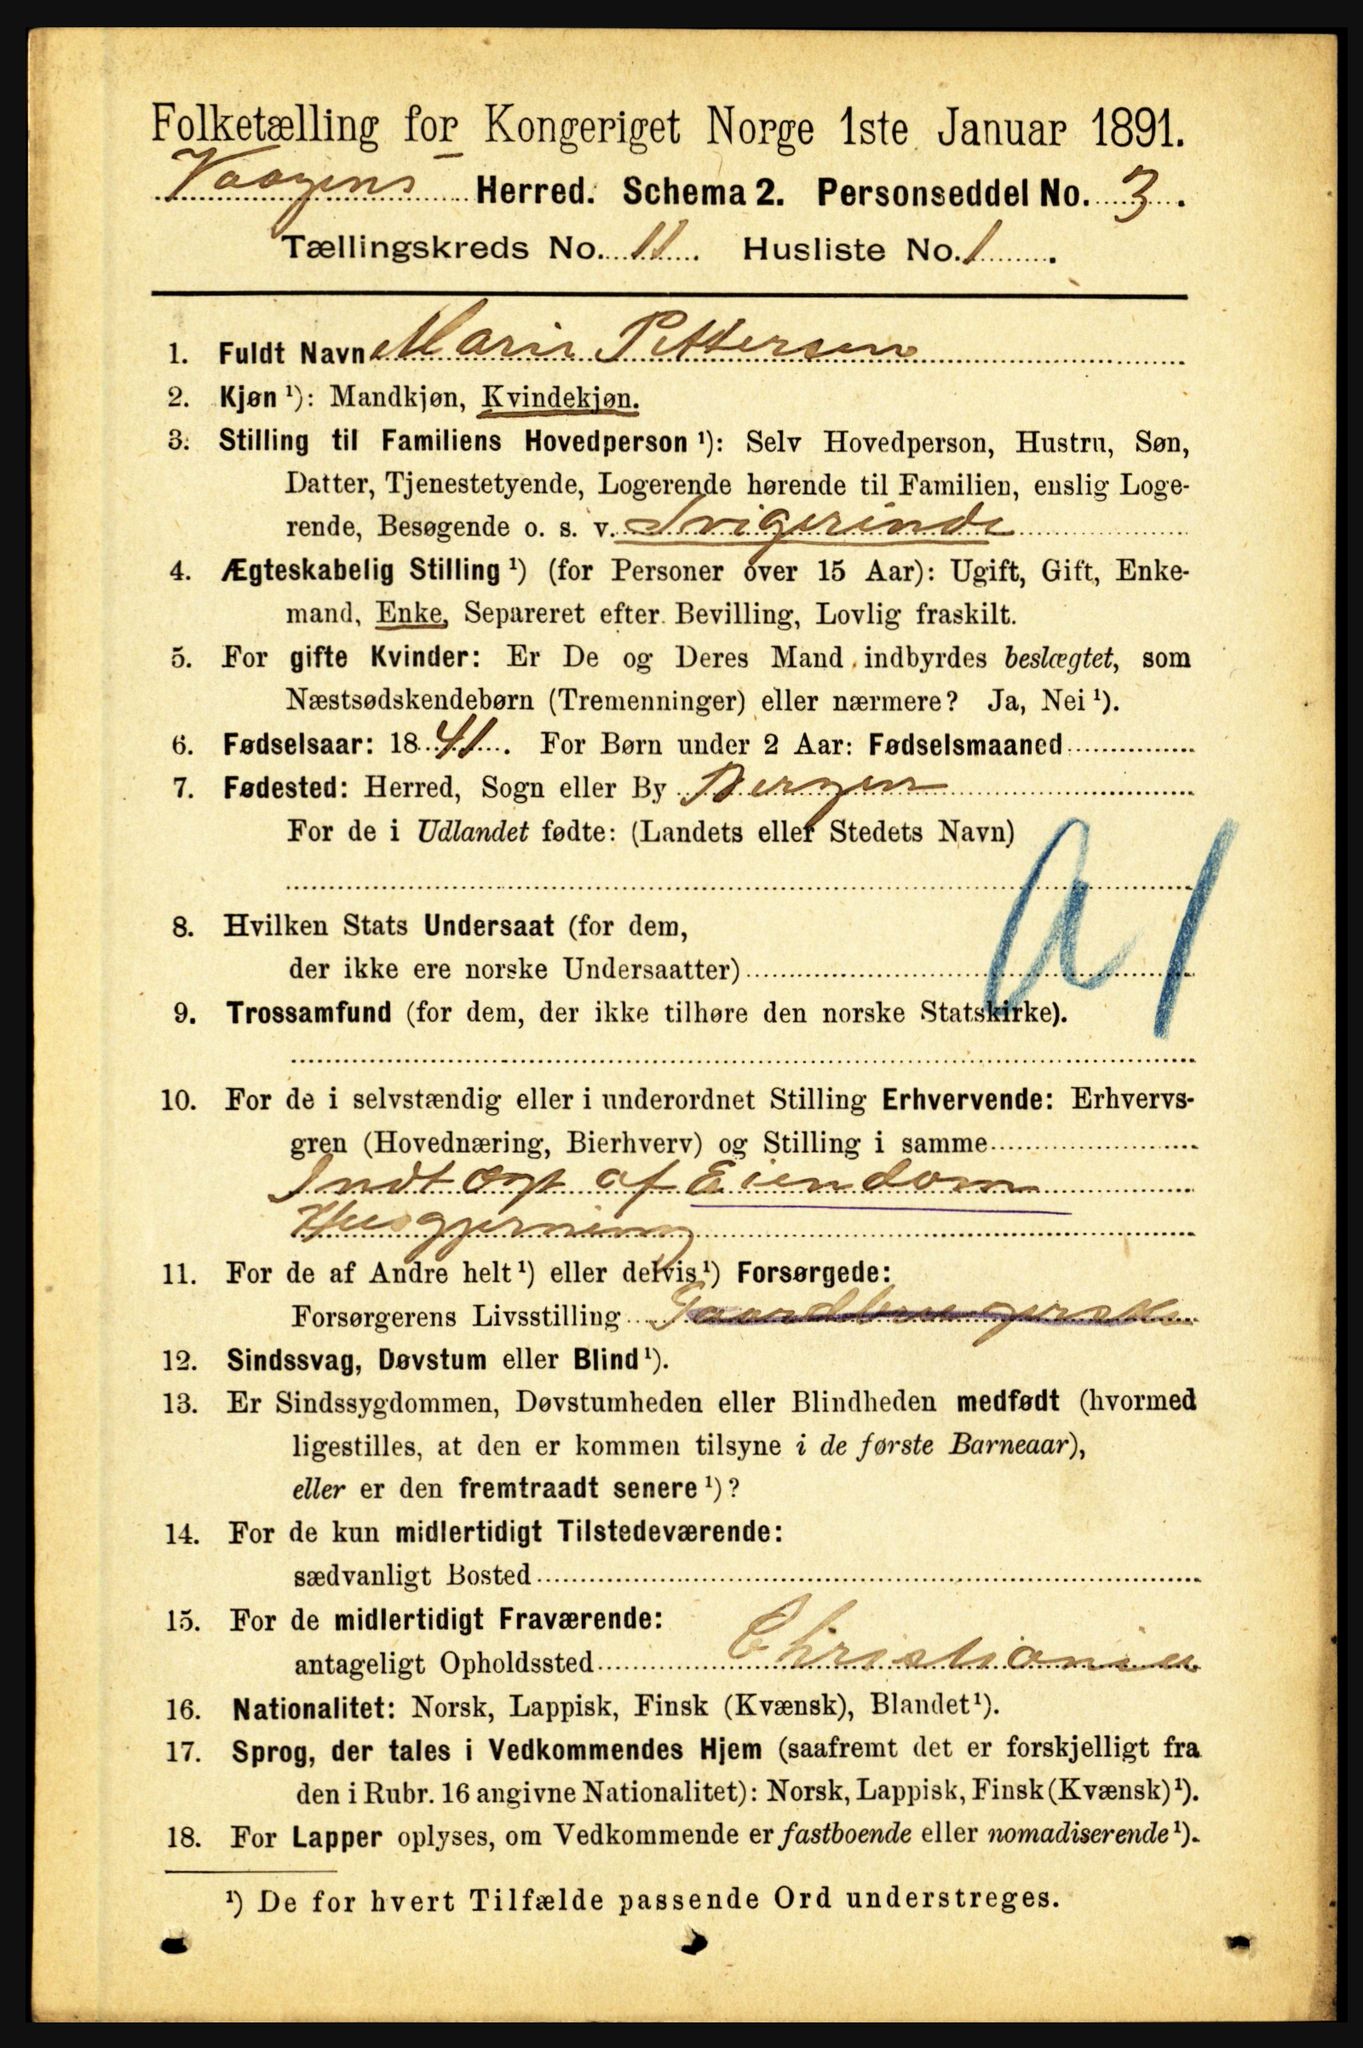 Folketælling for Kongeriget Norge 1ste Januar 1891.
Vaagens Herred. Schema 2. Personseddel No. 3.
Tællingskreds No. 11. Husliste No. 1.
1. Fuldt Navn Marie Pettersen
2. Kjøn ¹): Mandkjøn, Kvindekjøn.
3. Stilling til Familiens Hovedperson ¹): Selv Hovedperson, Hustru, Søn,
Datter, Tjenestetyende, Logerende hørende til Familien, enslig Loge-
rende, Besøgende o. s. v. Svigerinde
4. Ægteskabelig Stilling ¹) (for Personer over 15 Aar): Ugift, Gift, Enke-
mand, Enke, Separeret efter Bevilling, Lovlig fraskilt.
5. For gifte Kvinder: Er De og Deres Mand indbyrdes beslægtet, som
Næstsødskendebørn (Tremenninger) eller nærmere? Ja, Nei ¹).
6. Fødselsaar: 1841. For Børn under 2 Aar: Fødselsmaaned
7. Fødested: Herred, Sogn eller By Bergen
For de i Udlandet fødte: (Landets eller Stedets Navn)
a 1
8. Hvilken Stats Undersaat (for dem,
der ikke ere norske Undersaatter)
9. Trossamfund (for dem, der ikke tilhøre den norske Statskirke).
10. For de i selvstændig eller i underordnet Stilling Erhvervende: Erhvervs-
gren (Hovednæring, Bierhverv) og Stilling i samme
Indtægt af Eiendom
Husgjerning
11. For de af Andre helt ¹) eller delvis ¹) Forsørgede:
Forsørgerens Livsstilling Gaardbrugerske
12. Sindssvag, Døvstum eller Blind ¹).
13. Er Sindssygdommen, Døvstumheden eller Blindheden medfødt (hvormed
ligestilles, at den er kommen tilsyne i de første Barneaar),
eller er den fremtraadt senere ¹)?
14. For de kun midlertidigt Tilstedeværende:
sædvanligt Bosted
15. For de midlertidigt Fraværende:
antageligt Opholdssted Christiania
16. Nationalitet: Norsk, Lappisk, Finsk (Kvænsk), Blandet ¹).
17. Sprog, der tales i Vedkommendes Hjem (saafremt det er forskjelligt fra
den i Rubr. 16 angivne Nationalitet): Norsk, Lappisk, Finsk (Kvænsk) ¹).
18. For Lapper oplyses, om Vedkommende er fastboende eller nomadiserende ¹).
¹) De for hvert Tilfælde passende Ord understreges.